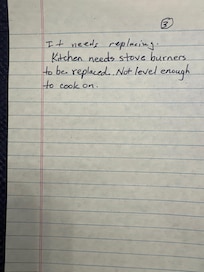 3
It needs replacing.
Kitchen needs stove burners
to be replaced. Not level enough
to cook on.